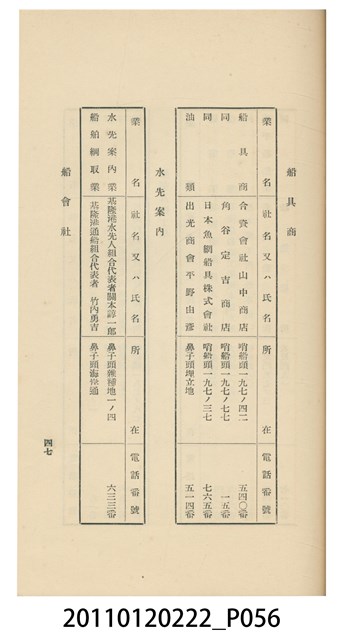 船具商
業名 社名又ハ氏名 所在 電話番號
船具商 合資會社山中商店 哨船頭一九七ノ四二 五四〇番
同 角谷定吉商店 哨船頭一九七ノ七七 一五番
同 日本魚網船具株式會社 哨船頭一九七ノ三七 七六五番
油類 出光商會平野由彥 鼻子頭埋立地 五一四番
水先案内
業名 社名又ハ氏名 所在 電話番號
水先案内業 基隆港水先人組合代表者關本諄一郎 鼻子頭雜種地一ノ四 六三三番
船舶綱取業 基隆港通船組合代表者 竹內勇吉 鼻子頭海岸通
船會社
四七
20110120222_P056